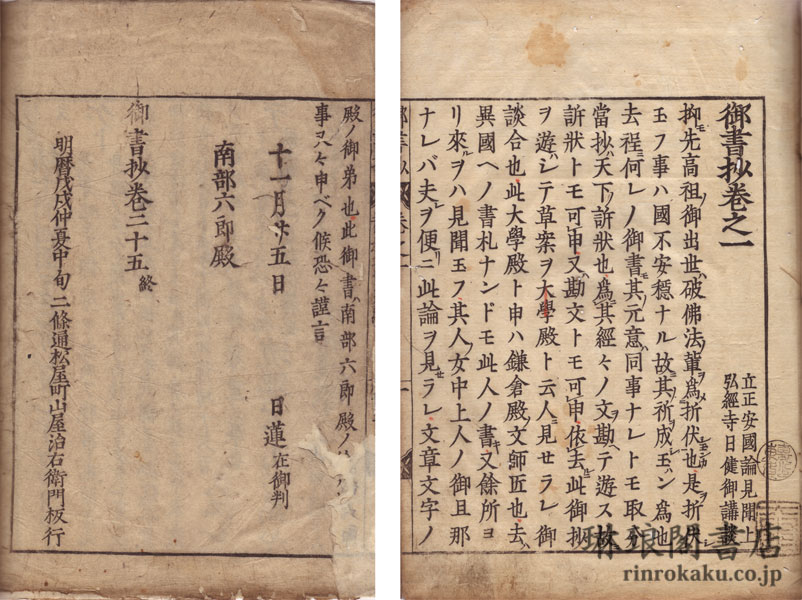 御書抄卷之一
立正安國論見聞上
弘經寺日健御講談
抑先高祖御出世破佛法輩爲折伏也是折伏
玉フ事ハ國不安穩ナル故其祈成玉ン爲也
去程何レノ御書其元意同事ナレトモ取分
當抄天下訴狀也爲其經々ノ文勘テ遊ス故
訴狀トモ可申又勘文トモ可申依去此御抄
ヲ遊シテ草案ヲ大學殿ト云人見セラレ御
談合也此大學殿ト申ハ鎌倉殿文師匠也去
異國ヘノ書札ナンドモ此人ノ書又餘所ヨ
リ來ヲハ見聞玉フ其人女中上人ノ御且那
ナレバ夫ヲ便ニ此論ヲ見ラレ文章文字ノ
殿ノ御弟也此御書南部六郎殿ノ
事ヲハ申ベク候恐々謹言
十一月廿五日
日蓮 在御判
南部六郎殿
御書抄卷二十五 終
明曆戊戌仲夏中旬二條通松屋町山屋治右衛門板行
琳琅閣書店
rinrokaku.co.jp